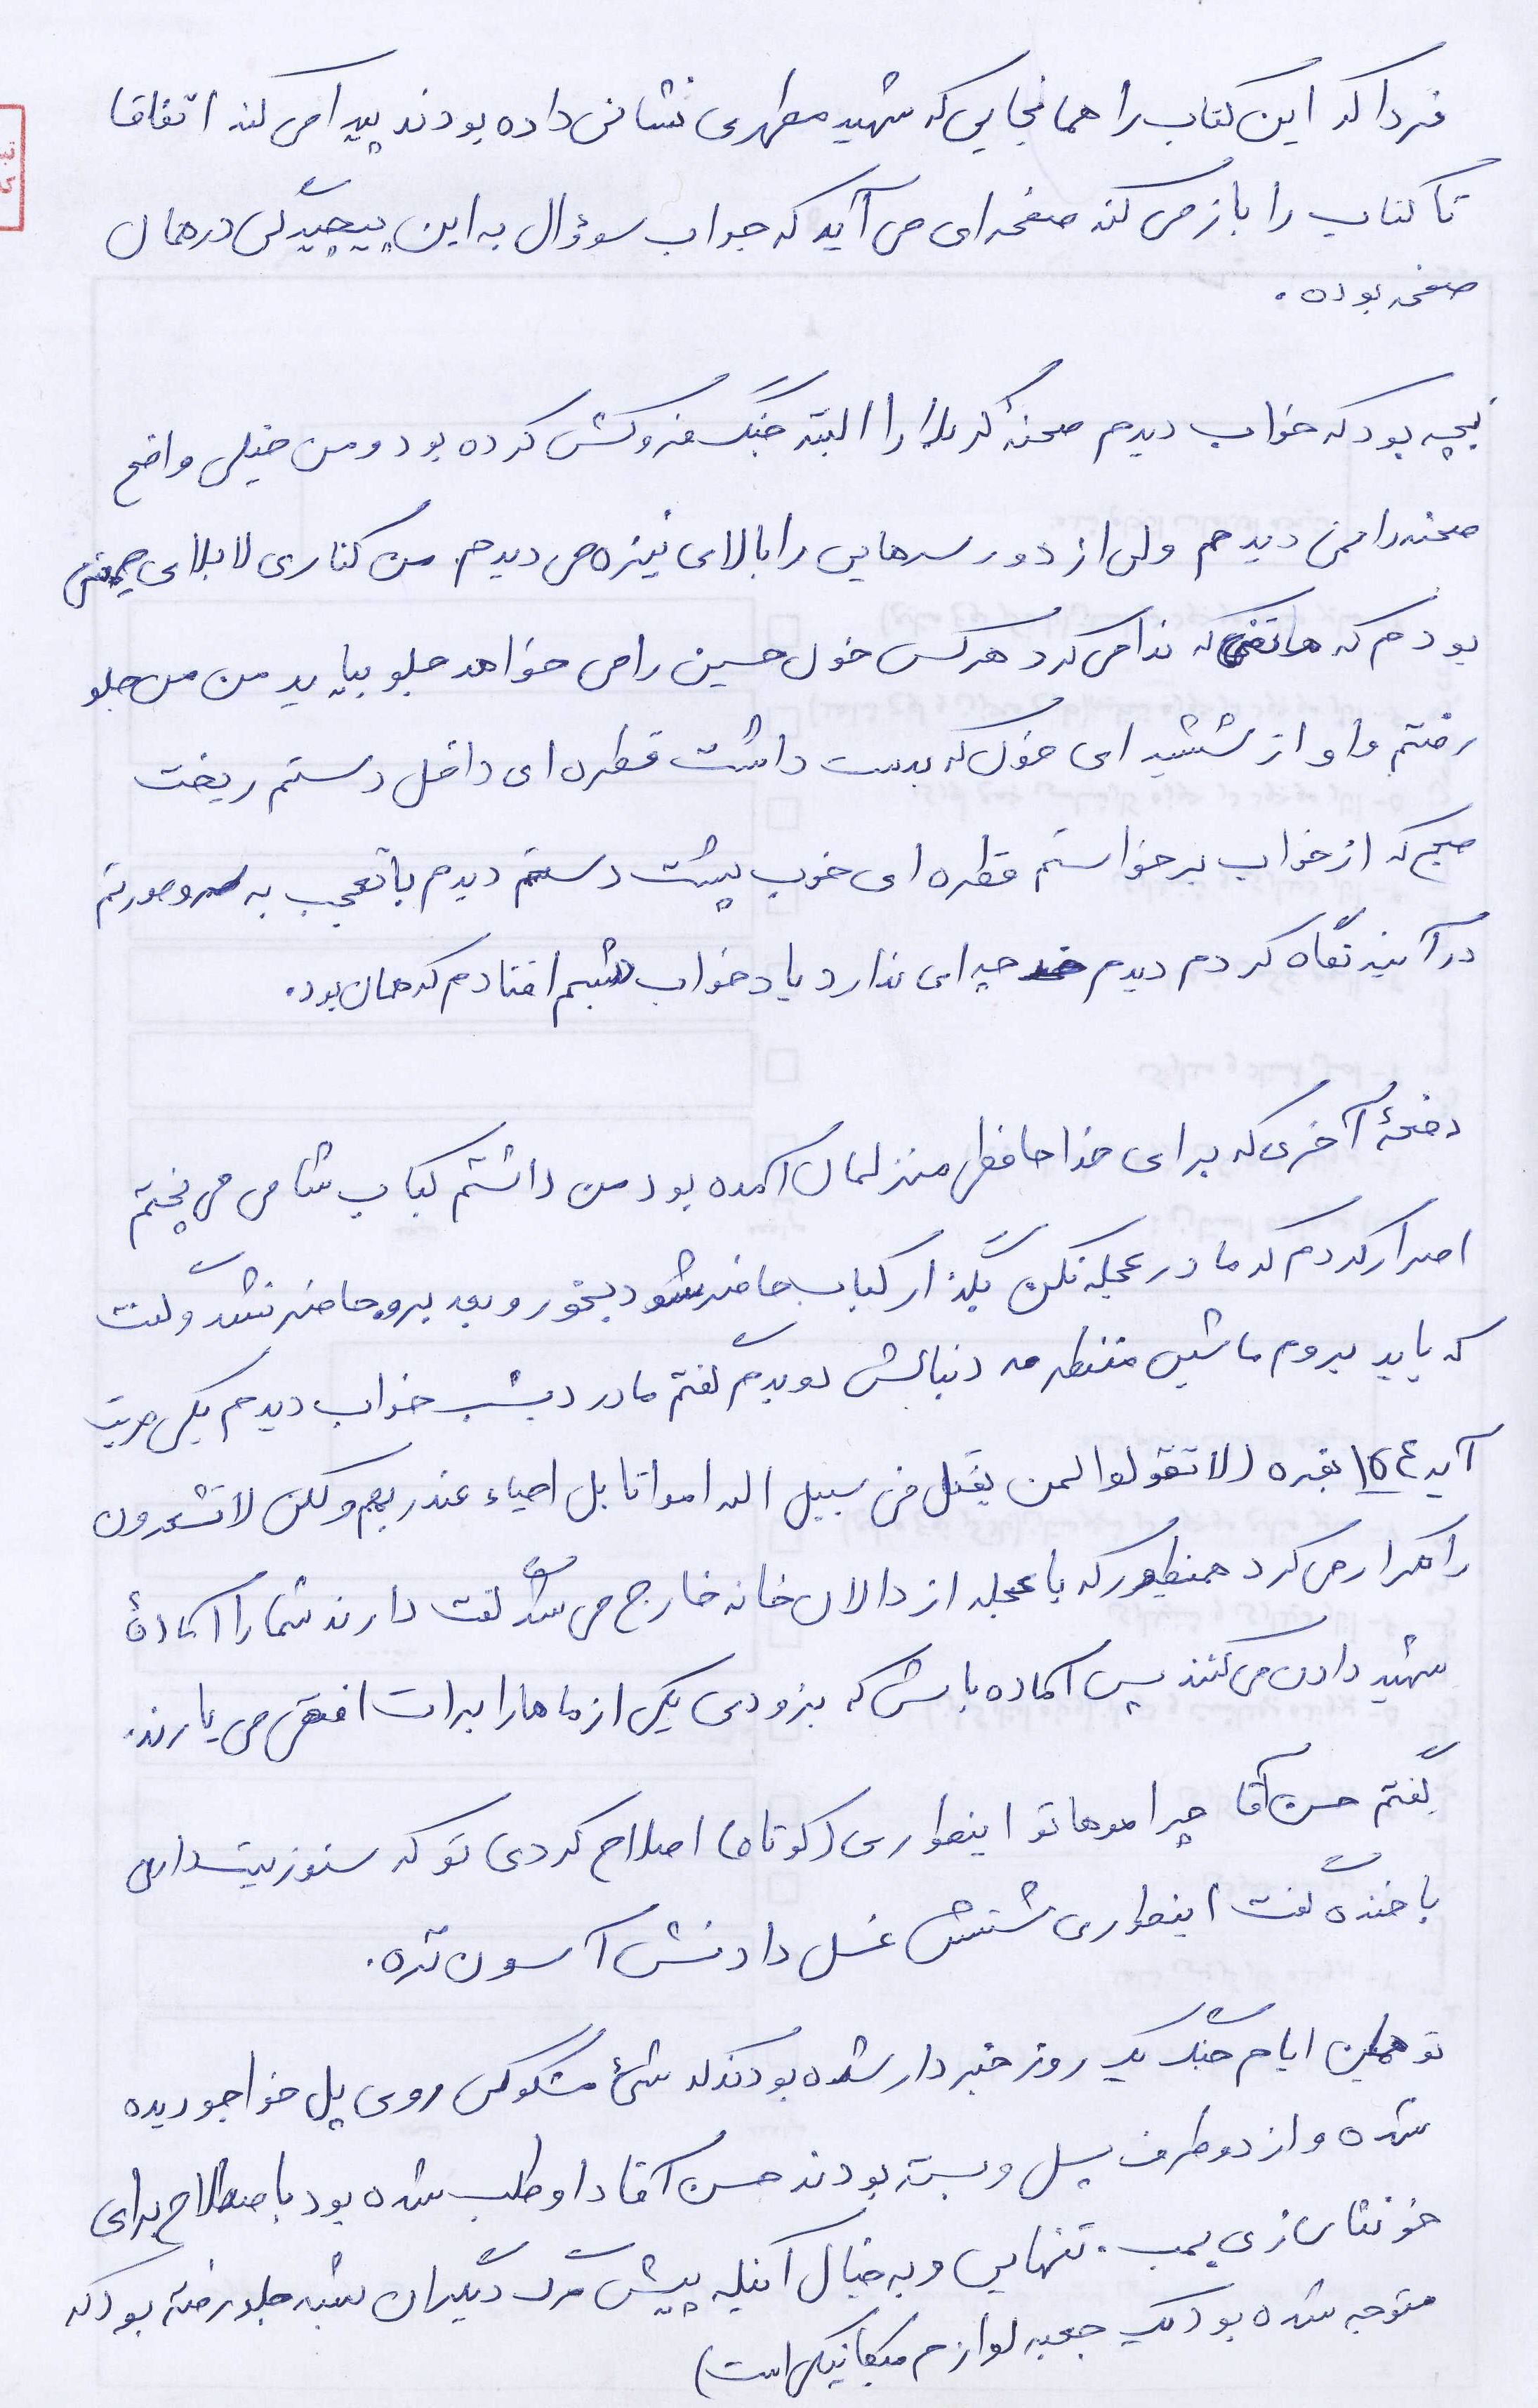 فردا که این کتاب را همانجایی که شهید مطهری نشانی داده بودند پیدا می کند اتفاقا
تا کتاب را باز می کند صفحه ای می آید که جواب سوؤال به این پیچیدگی در همان
صفحه بوده.
بچه بود که خواب دیدم صحنهٔ کربلا را البته جنگ فروکش کرده بود و من خیلی واضح
صحنه را نمی دیدم ولی از دور سرهایی را بالای نیزه می دیدم. من کناری لابلای جمعیتی
بودم که هاتفی که ندا می کرد هر کس خون حسین را می خواهد جلو بیاید من من جلو
رفتم و او از شیشه ای خون که بدست داشت قطره ای داخل دستم ریخت
صبح که از خواب برخواستم قطره ای خون پشت دستم دیدم با تعجب به سر و صورتم
در آینه نگاه کردم دیدم چیزی ای ندارد یاد خواب شبم افتادم که همان بود.
دفعهٔ آخری که برای خداحافظی منزلمان آمده بود من داشتم کباب شامی می پختم
اصرار کردم که مادر عجله نکن بگذار کباب حاضر شود بخور و بعد برو. حاضر نشد و گفت
که باید بروم ماشین منتظرمه دنبالش دویدم گفتم مادر دیشب خواب دیدم یکی مرتب
آیه ۱۵۴ بقره (لا تقولوا لمن یقتل فی سبیل اله امواتا بل احیاء عند ربهم ولکن لا تشعرون
را تکرار می کرد همینطور که با عجله از دالان خانه خارج می شد گفت دارند شما را آمادهٔ
شهید دادن می کنند پس آماده باش که بزودی یکی از ماها را برات افقی می یارند.
گفتم حسن آقا چرا موهاتو اینطوری (کوتاه) اصلاح کردی تو که سنو زیت داری
با خنده گفت اینطوری شستش غسل دادنش آسون تره.
تو همین ایام جنگ یک روز خبردار شده بودند که شئ مشکوکی روی پل خواجو دیده
شده و از دو طرف پل و بسته بودند حسن آقا داوطلب شده بود باصطلاح برای
خونثا سازی بمب. تنهایی و به خیال آنیکه پیش مرگ دیگران بشه جلو رفته بود که
متوجه شده بود یک جعبه لوازم میکانیکی است)